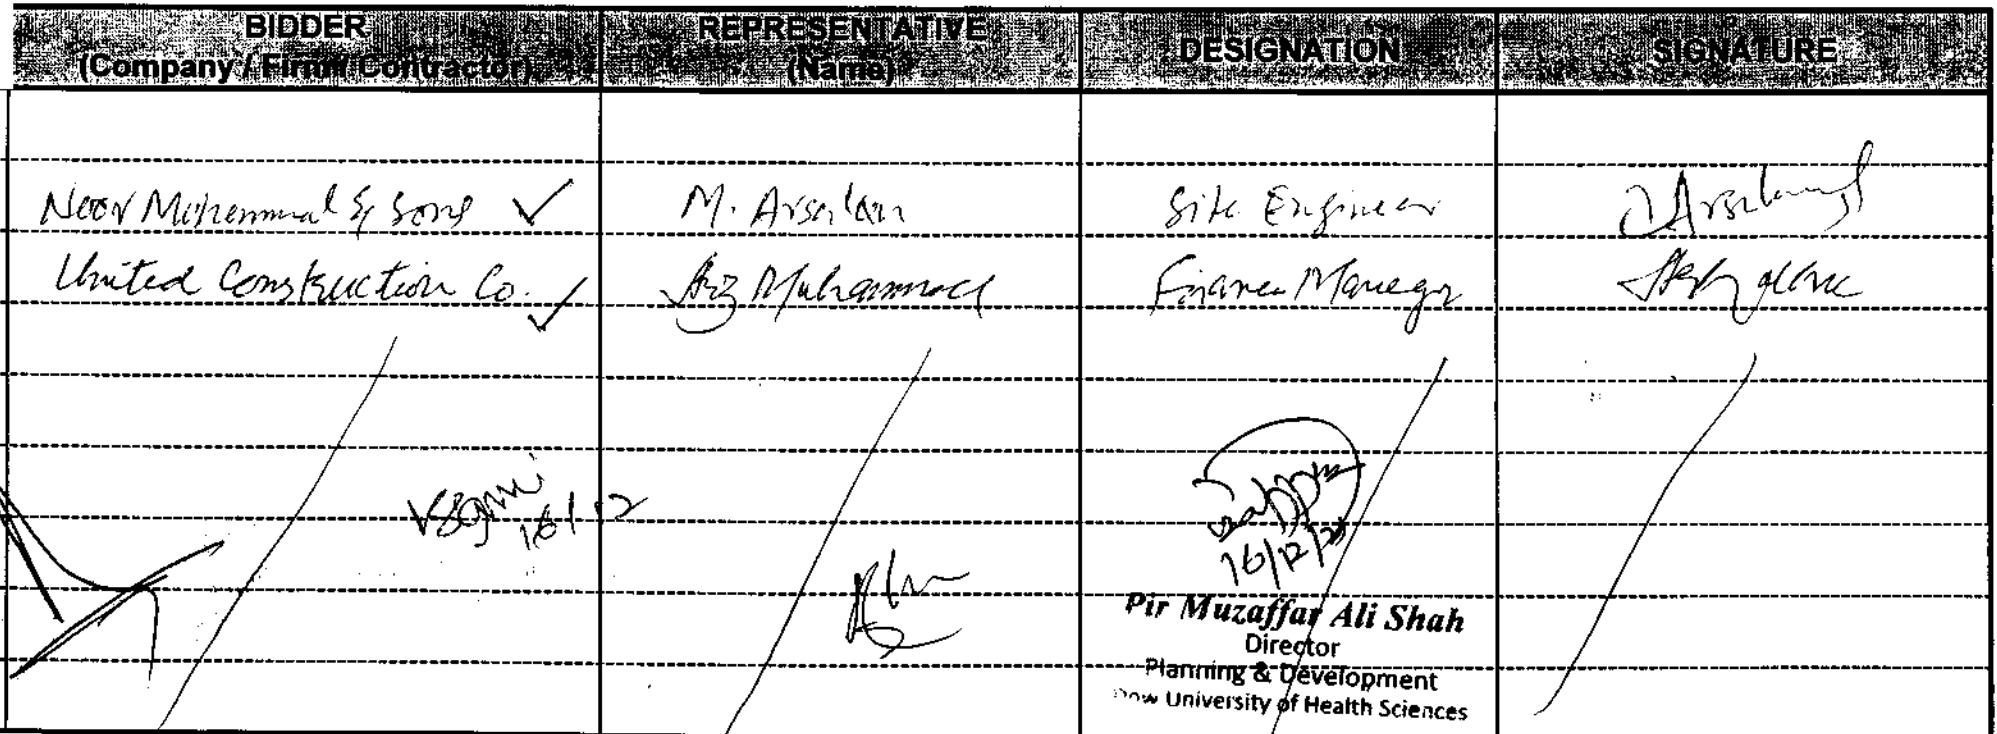 BIDDER
(Company / Firm / Contractor)
REPRESENTATIVE
(Name)
DESIGNATION
SIGNATURE
Noor Mohammad & Sons ✓
M. Arsalan
Site Engineer
Arsalan
United Construction Co. ✓
Muhammad
Finance Manager
16/12
16/12/21
Pir Muzaffar Ali Shah
Director
Planning & Development
Dow University of Health Sciences